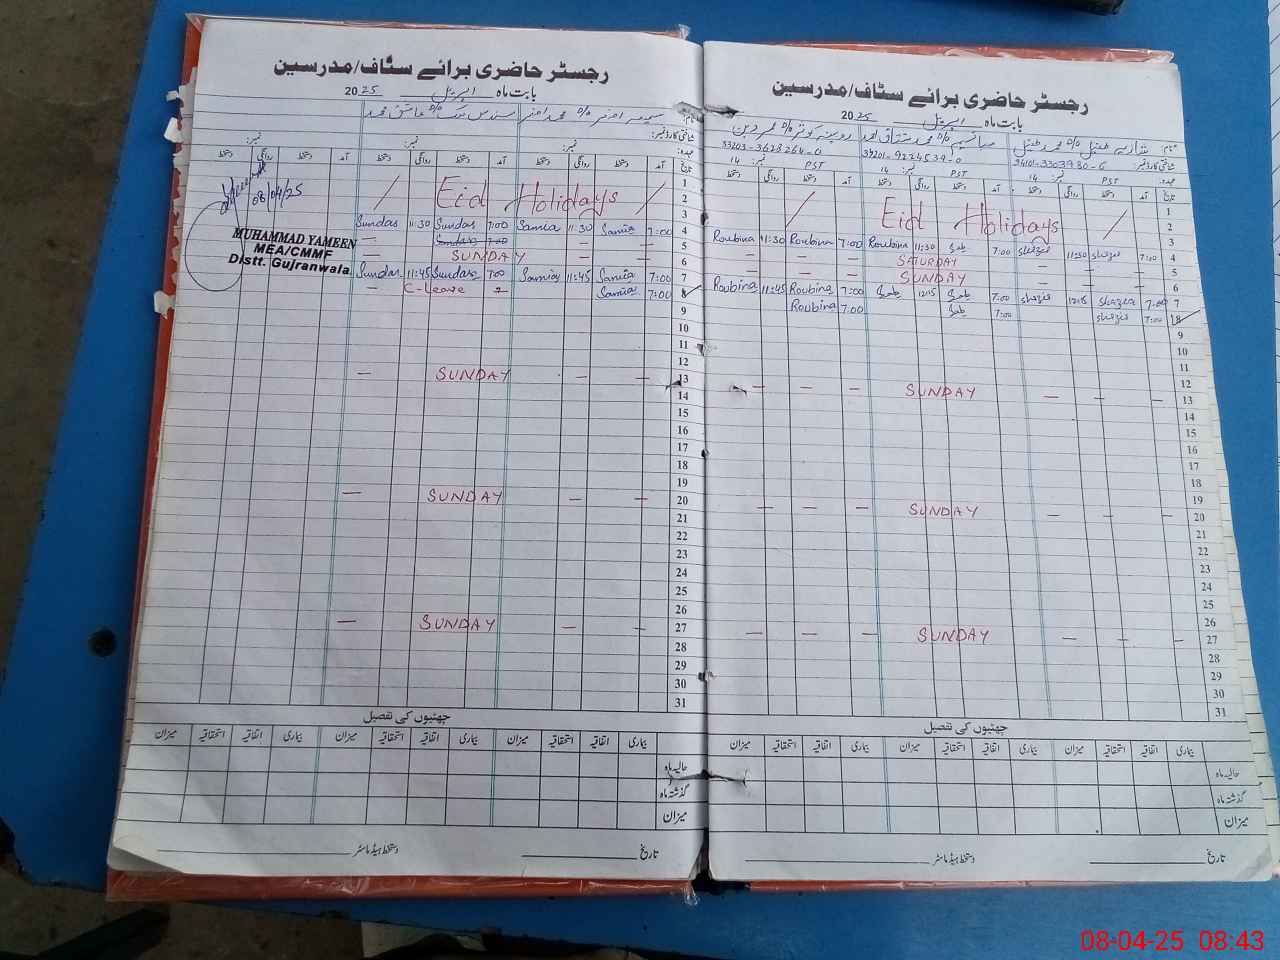 رجسٹر حاضری برائے سٹاف/مدرسین
بابت ماہ اپریل 2025
نام:
شناختی کارڈ نمبر:
عہدہ:
نمبر: نمبر: نمبر:
تاریخ آمد دستخط روانگی دستخط آمد دستخط روانگی دستخط آمد دستخط روانگی دستخط
1
2 / Eid Holidays /
3
Sundas 11:30 Sundas 7:00 Samia 11:30 Samia 7:00 4
— Sundas 7:00 — — 5
— SUNDAY — — 6
Sundas 11:45 Sundas 7:00 Samia 11:45 Samia 7:00 7
— C-Leave Samia 7:00 8
9
10
11
12
— SUNDAY — — 13
14
15
16
17
18
19
— SUNDAY — — 20
21
22
23
24
25
26
— SUNDAY — — 27
28
29
30
31
08/04/25
MUHAMMAD YAMEEN
MEA/CMMF
Distt. Gujranwala
چھٹیوں کی تفصیل
بیماری اتفاقیہ استحقاقیہ میزان بیماری اتفاقیہ استحقاقیہ میزان بیماری اتفاقیہ استحقاقیہ میزان
حالیہ ماہ
گذشتہ ماہ
میزان
تاریخ دستخط ہیڈماسٹر
رجسٹر حاضری برائے سٹاف/مدرسین
بابت ماہ اپریل 2025
نام:
شناختی کارڈ نمبر: 34101-3303930-6 34201-9224539-0 33203-3628264-0
عہدہ: PST نمبر: 14 PST نمبر: 14 PST نمبر: 14
تاریخ آمد دستخط روانگی دستخط آمد دستخط روانگی دستخط آمد دستخط روانگی دستخط
1
/ Eid Holidays / 2
3
Roubina 11:30 Roubina 7:00 Roubina 11:30 7:00 11:30 7:00 4
— — — SATURDAY — — — 5
— — — SUNDAY — — — 6
Roubina 11:45 Roubina 7:00 12:15 7:00 12:15 7:00 7
Roubina 7:00 7:00 7:00 8
9
10
11
12
— — — SUNDAY — — — 13
14
15
16
17
18
19
— — — SUNDAY — — — 20
21
22
23
24
25
26
— — — SUNDAY — — — 27
28
29
30
31
چھٹیوں کی تفصیل
بیماری اتفاقیہ استحقاقیہ میزان بیماری اتفاقیہ استحقاقیہ میزان بیماری اتفاقیہ استحقاقیہ میزان
حالیہ ماہ
گذشتہ ماہ
میزان
تاریخ دستخط ہیڈماسٹر
08-04-25 08:43